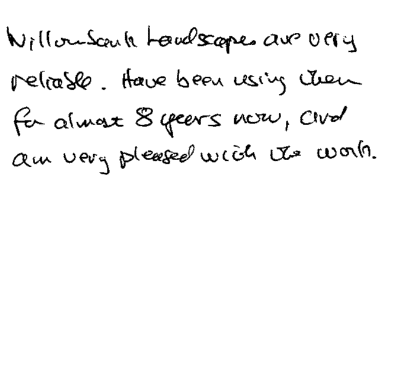 Willowbank Landscapes are very
reliable. Have been using them
for almost 8 years now, and
am very pleased with the work.